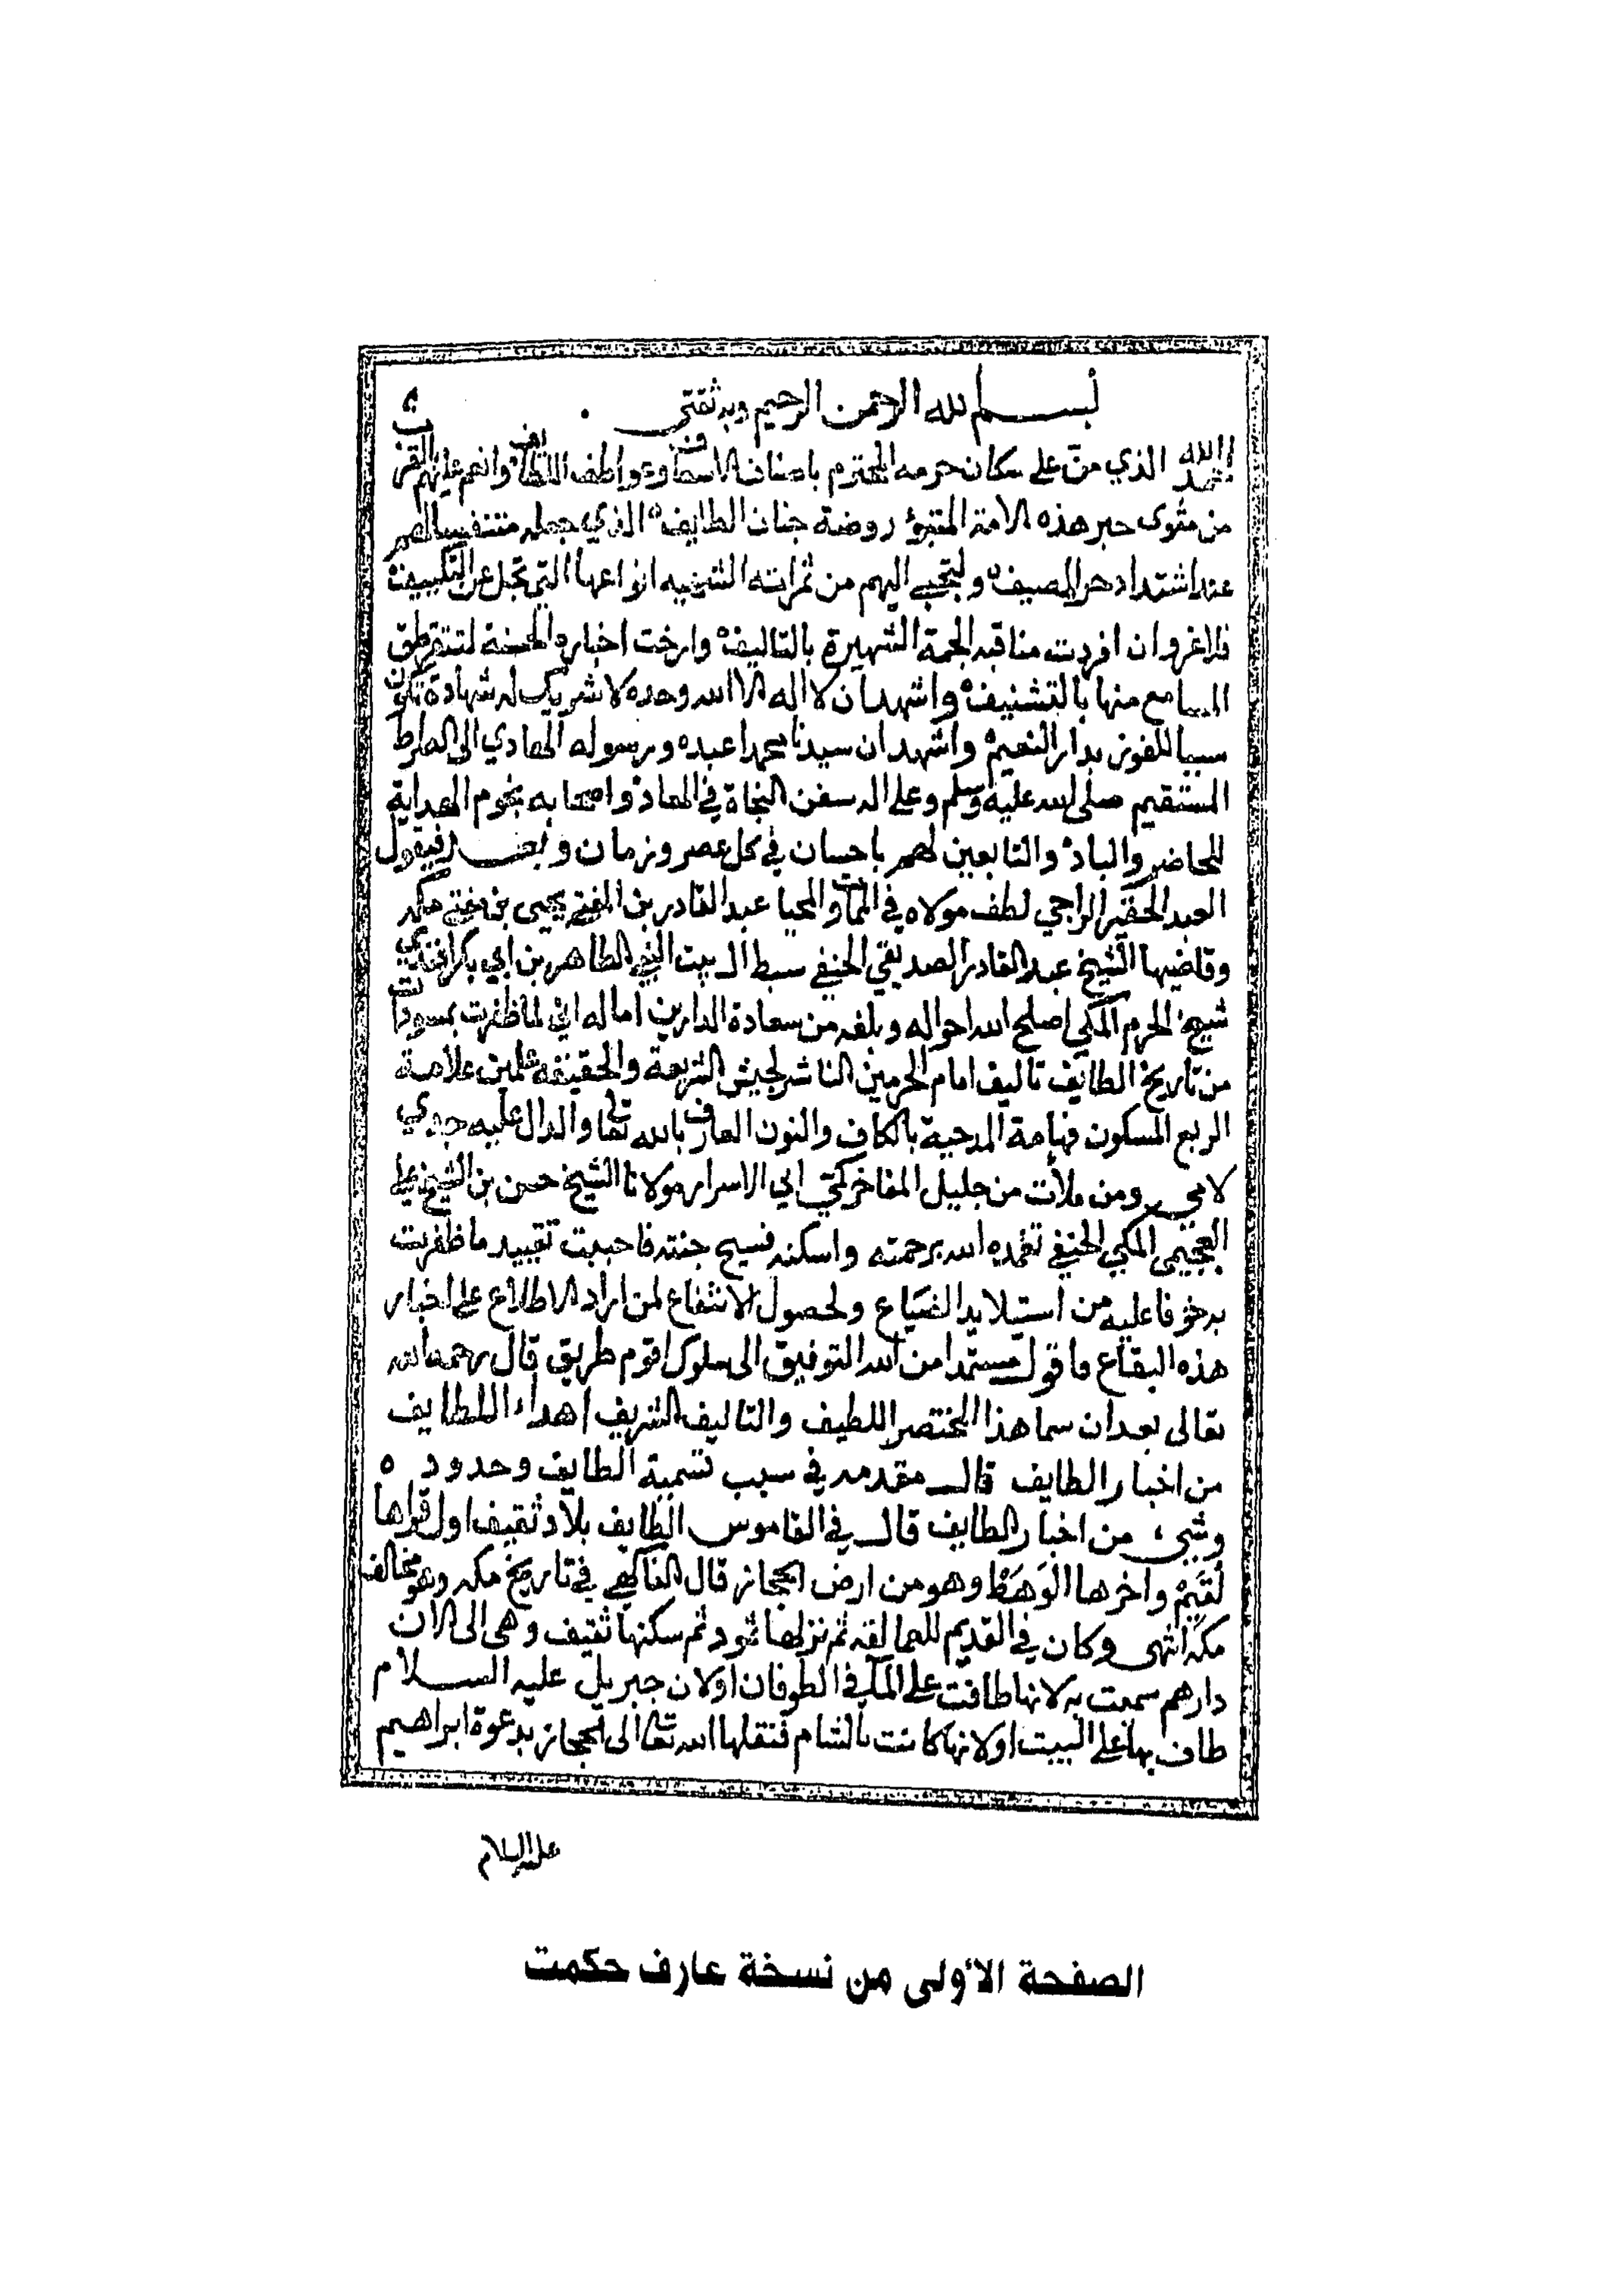 بسم الله الرحمن الرحيم وبه ثقتي
الحمد لله الذي منّ على سكان حرمه المحترم باصناف الاسعاف وعواطف اللطائف وانعم عليهم بالقرب
من مثوى حبر هذه الامة المتبوّء روضة جنان الطايف الذي جعله متنفسا لهم
عند اشتداد حر المصيف وليجبى اليهم من ثمراته الشهية انواعها التي تجل عن التكييف
فلا غرو ان افردت مناقبه الجمة الشهيرة بالتاليف وارخت اخباره الحسنة لتتقرطق
المسامع منها بالتشنيف واشهد ان لا اله الا الله وحده لا شريك له شهادة تكون
سببا للفوز بدار النعيم واشهد ان سيدنا محمدا عبده ورسوله الهادي الى الصراط
المستقيم صلى الله عليه وسلم وعلى اله سفن النجاة في المعاد واصحابه نجوم الهداية
للحاضر والباد والتابعين لهم باحسان في كل عصر وزمان وبعد فيقول
العبد الحقير الراجي لطف مولاه في الممات والمحيا عبد القادر بن المفتي يحيى بن مفتي مكه
وقاضيها الشيخ عبد القادر الصديقي الحنفي سبط ال بيت النبي الطاهر بن ابي بكر افندي
شيخ الحرم المكي اصلح الله احواله وبلغه من سعادة الدارين اماله اني لما ظفرت بمسودات
من تاريخ الطايف تاليف امام الحرمين الناشر لجيش الشريعة والحقيقة علمين علامة
الربع المسكون فهامة المدحية بالكاف والنون العارف بالله تعالى والدال عليه جدي
لامي ومن ملأت من جليل المفاخر كمي ابي الاسرار مولانا الشيخ حسن بن الشيخ علي
العجيمي المكي الحنفي تغمده الله برحمته واسكنه فسيح جنته فاحببت تقييد ما ظفرت
به خوفا عليه من استيلا يد الضياع ولحصول الانتفاع لمن اراد الاطلاع على اخبار
هذه البقاع فاقول مستمدا من الله التوفيق الى سلوك اقوم طريق قال رحمه الله
تعالى بعد ان سما هذا المختصر اللطيف والتاليف الشريف اهداء اللطايف
من اخبار الطايف قال مقدمه في سبب تسمية الطايف وحدوده
وشيء من اخبار الطايف قال في القاموس الطايف بلاد ثقيف اول قراها
لُقَيْمْ واخرها الوَهْطْ وهو من ارض الحجاز قال الفاكهي في تاريخ مكه وهو مخالف
مكة انتهى وكان في القديم للعمالقه ثم نزلها ثمود ثم سكنها ثقيف وهى الى الان
دارهم سميت به لانها طافت على الماء في الطوفان اولان جبريل عليه السلام
طاف بها على البيت اولانها كانت بالشام فنقلها الله تعالى الى الحجاز بدعوة ابراهيم
عليه السلام
الصفحة الأولى من نسخة عارف حكمت